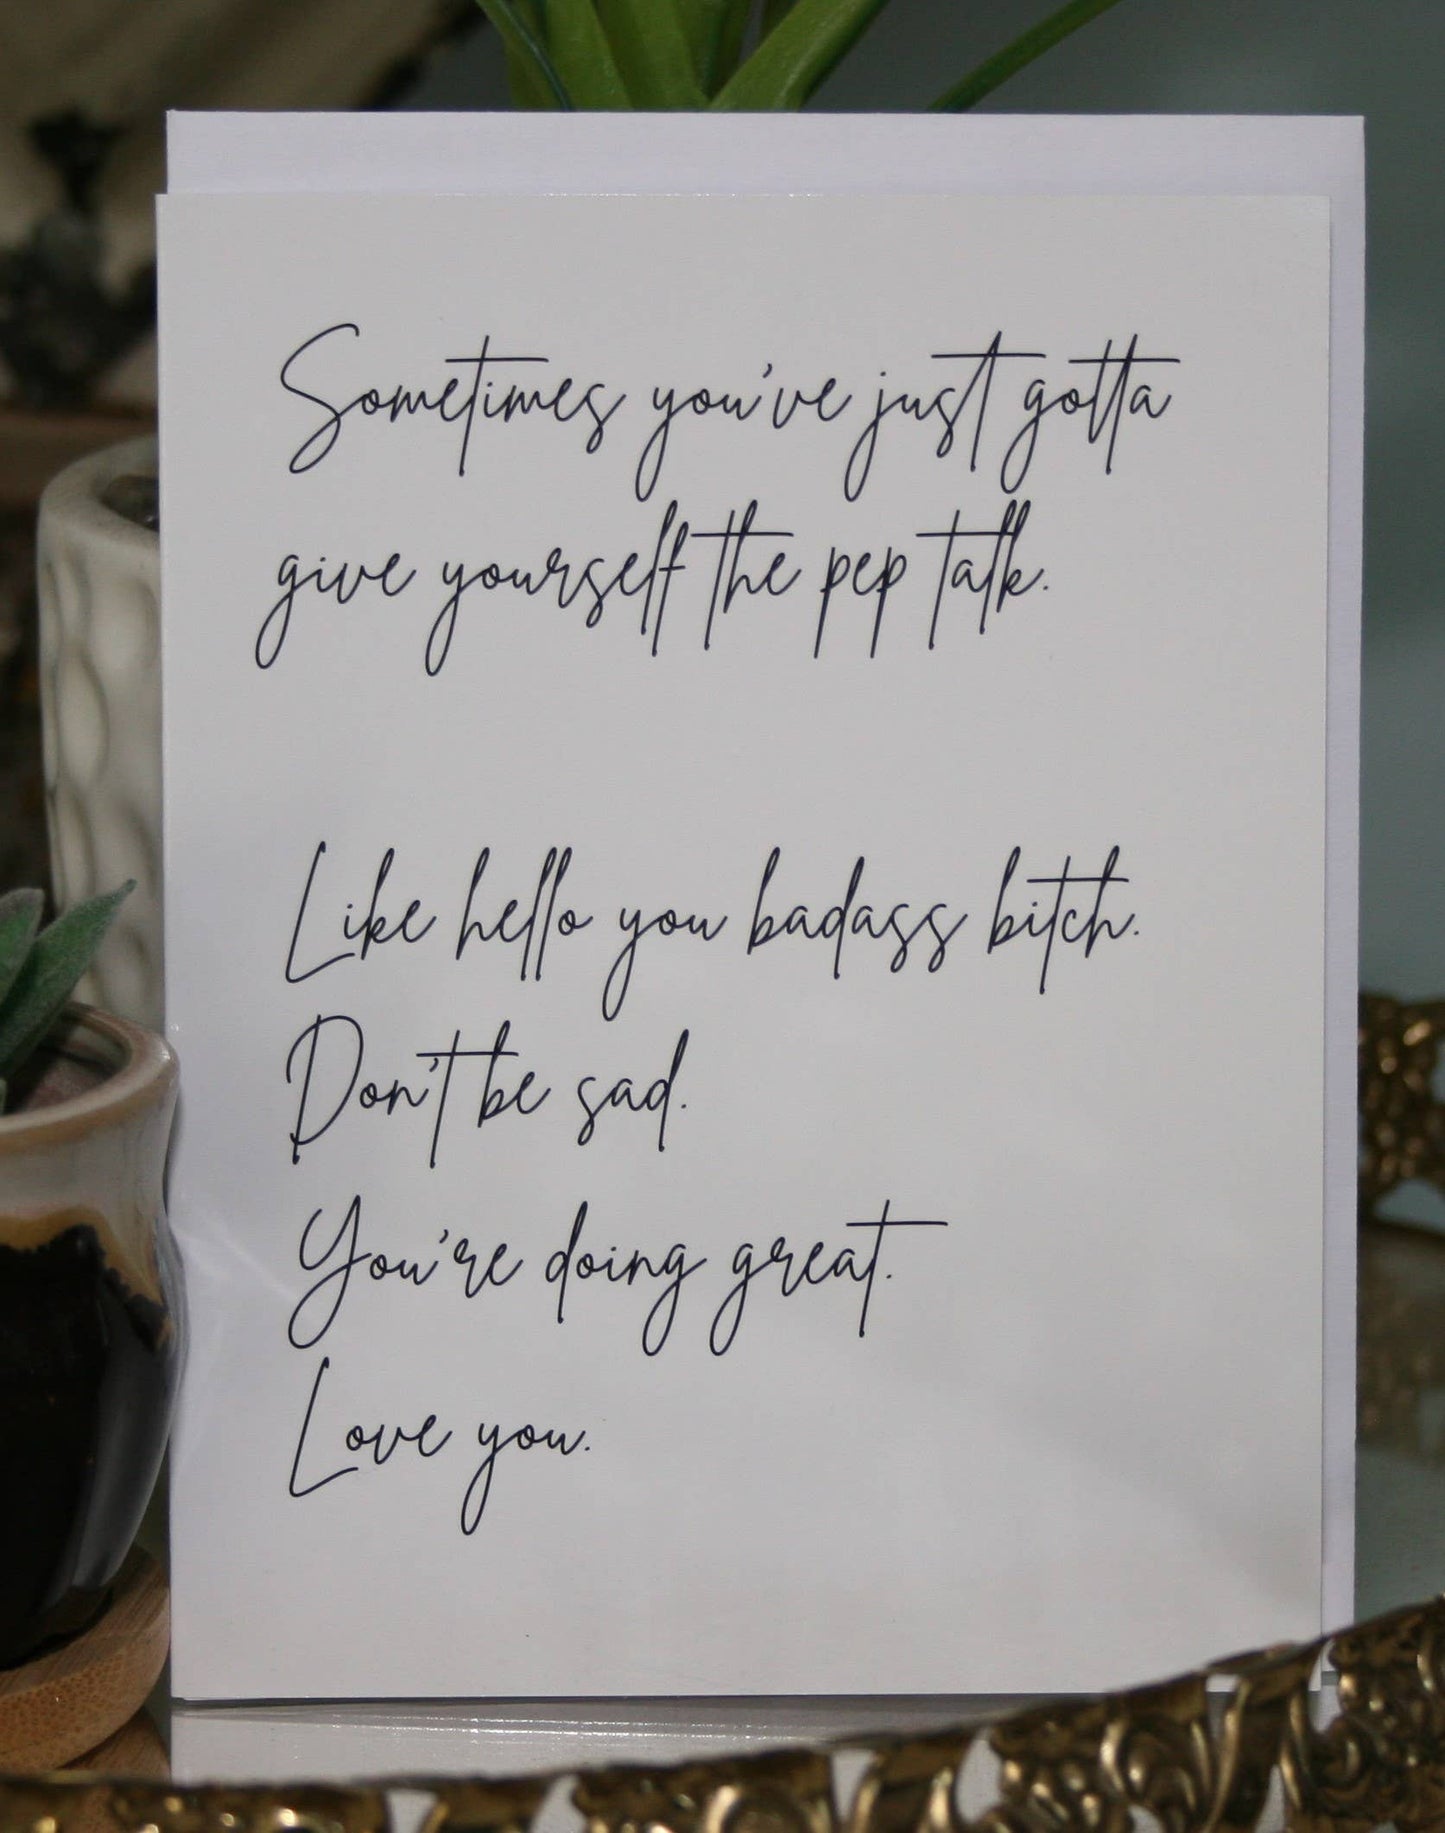 Sometimes you've just gotta
give yourself the pep talk.
Like hello you badass bitch.
Don't be sad.
You're doing great.
Love you.